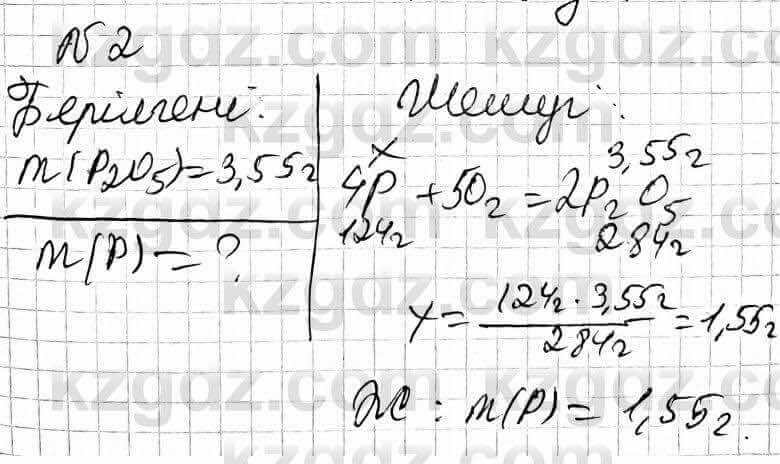 №2
Берілгені:
m(P2O5)=3,55г
m(P)=?
Шешуі:
x 3,55г
4P+5O2=2P2O5
124г 284г
x=124г·3,55г/284г=1,55г
Ж: m(P)=1,55г.
kzgdz.com